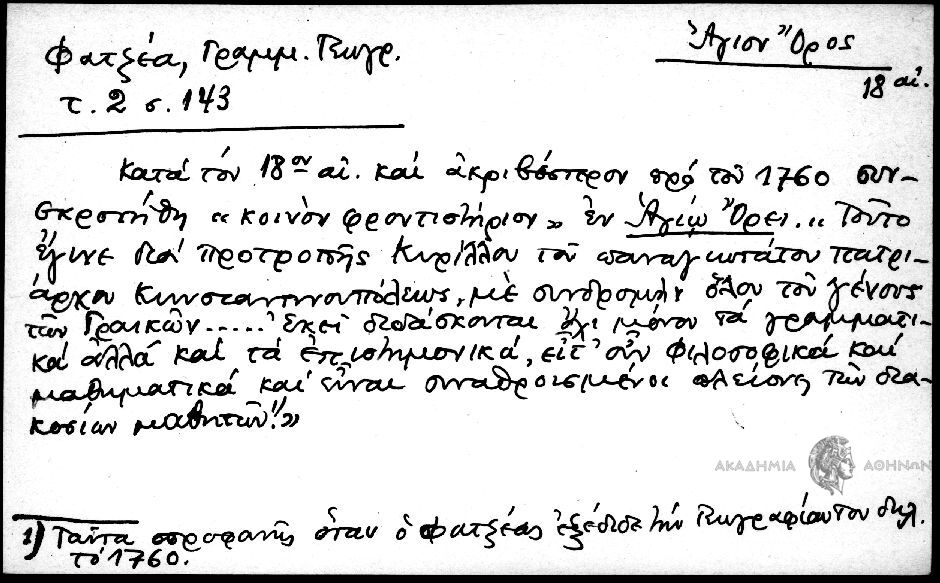 Φατζέα, Γραμμ. Γεωγρ.
τ. 2 σ. 143
Ἅγιον Ὄρος
18 αἰ.
Κατά τόν 18ον αἰ. καί ἀκριβέστερον πρό τοῦ 1760 συν-
εκροτήθη «κοινὸν φροντιστήριον» ἐν Ἁγίῳ Ὄρει. «Τοῦτο
ἔγινε διά προτροπῆς Κυρίλλου τοῦ παναγιωτάτου πατρι-
άρχου Κωνσταντινουπόλεως, μὲ συνδρομὴν ὅλου τοῦ γένους
τῶν Γραικῶν..... Ἐκεῖ διδάσκονται ὄχι μόνον τά γραμματι-
κά ἀλλά καί τά ἐπιστημονικά, εἴτ' οὖν φιλοσοφικά καί
μαθηματικά καί εἶναι συναθροισμένοι πλείονες τῶν δια-
κοσίων μαθητῶν.1)»
ΑΚΑΔΗΜΙΑ ΑΘΗΝΩΝ
1) Ταῦτα προφανῶς ὅταν ὁ Φατζέας ἐξέδιδε τήν Γεωγραφίαν του δηλ.
τό 1760.